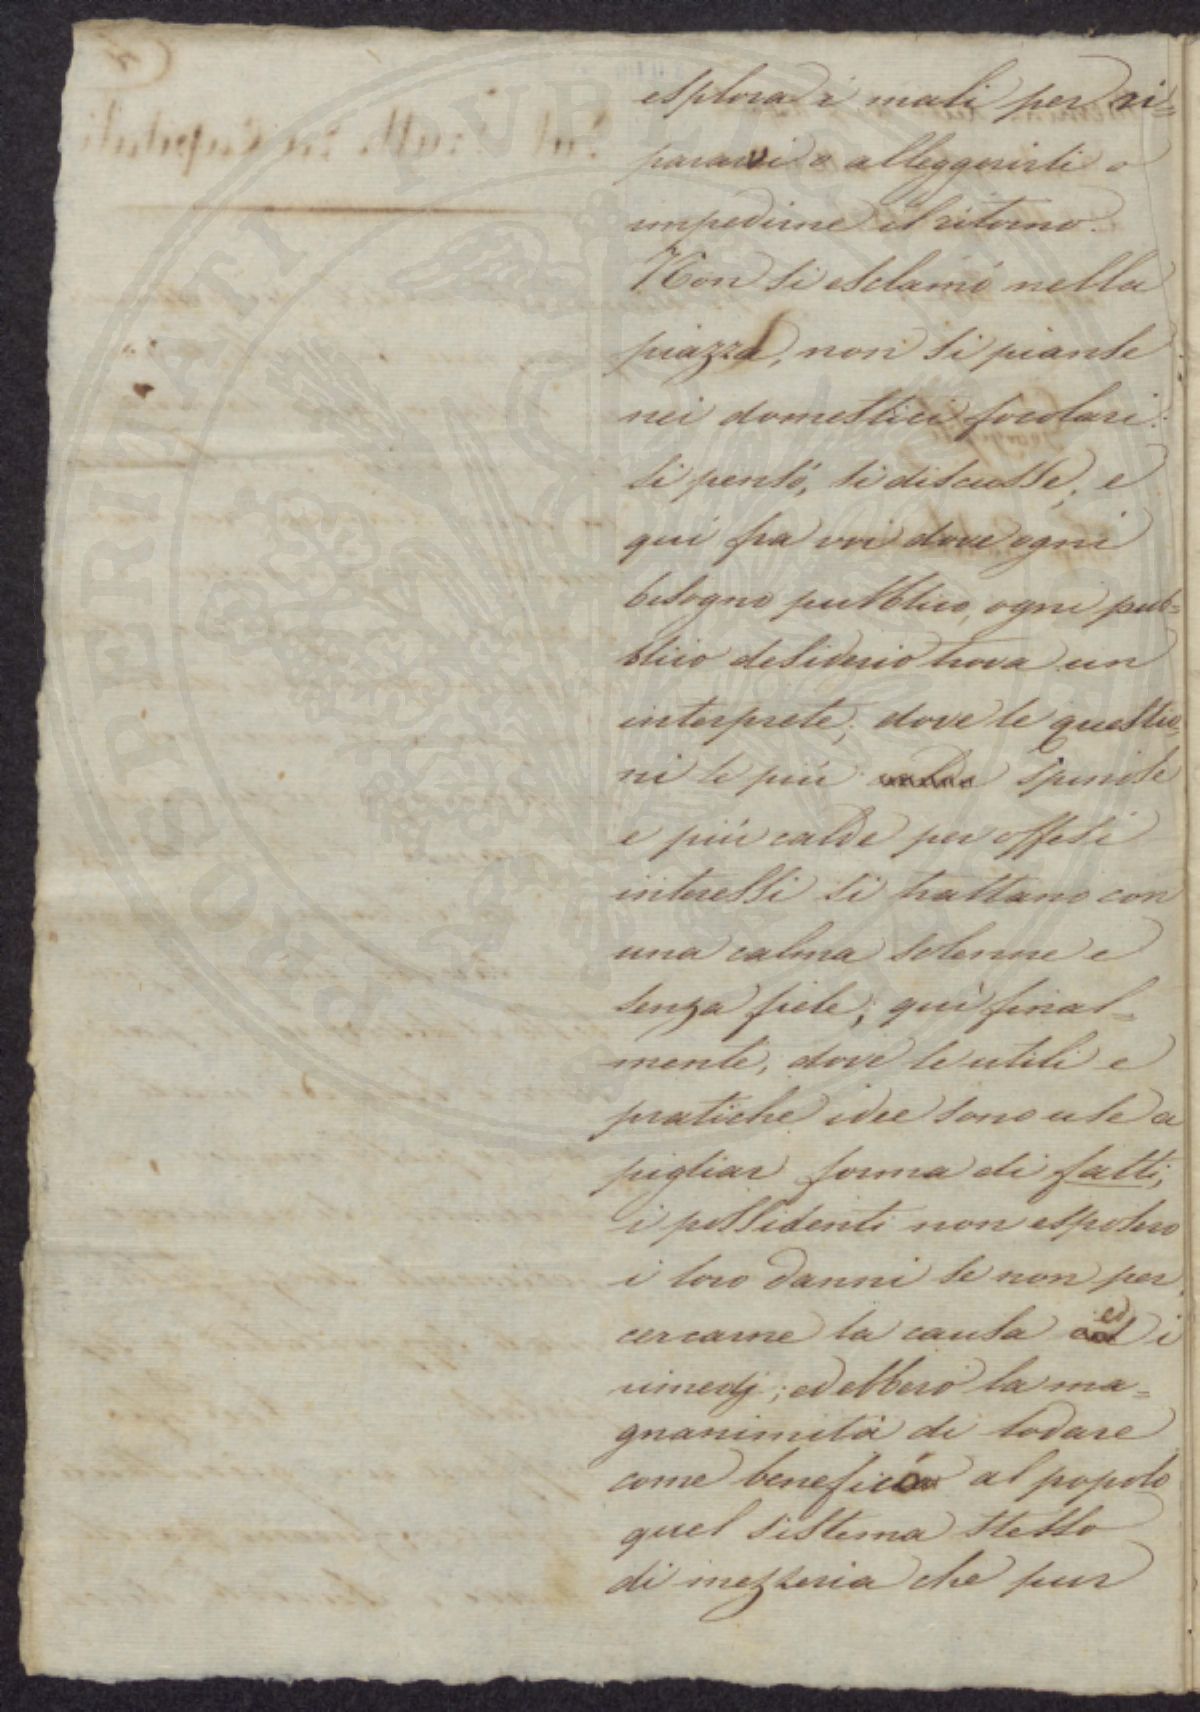 esplora i mali per ri=
pararvi o alleggerirli o
impedirne il ritorno.
Non si esclamò nella
piazza, non si pianse
nei domestici focolari:
si pensò, si discusse, e
qui fra voi dove ogni
bisogno pubblico, ogni pub=
blico desiderio trova un
interprete; dove le questio=
ni le più spinose
e più calde per offesi
interessi si trattano con
una calma solenne e
senza fiele; qui final=
mente, dove le utili e
pratiche idee sono use a
pigliar forma di fatti;
i possidenti non esposero
i loro danni se non per
cercarne la causa ed i
rimedj; ed ebbero la ma=
gnanimità di lodare
come beneficio al popolo
quel sistema stesso
di mezzeria che pur
PROSPERITATI PUBLICAE